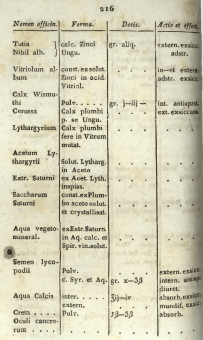 216
Nomen officin. Forma. Dosis. Actio et effect.
Tutia } calc. Zinci gr. aliq. extern. exsicc.
Nihil alb. Ungu. adstr.
Vitriolum al- const. ex solut. in—et extern.
bum Zinci in acid. adstr. exsicc.
Vitriol.
Calx Wismu-
thi Pulv. gr. j—iij— int. antispast.
Cerussa Calx plumbi ext. exsiccans.
p. se Ungu.
Lythargyrium Calx plumbi
fere in Vitrum
mutat.
Acetum Ly-
thargyrii Solut. Lytharg.
in Aceto
Extr. Saturni ex Acet. Lyth.
inspiss.
Saccharum const. ex Plum-
Saturni bo aceto solut.
et crystallisat.
Aqua vegeto- ex Extr. Saturn.
mineral. in Aq. calc. et
Spir. vin. solut.
Semen lyco-
podii Pulv. extern. exsicc.
c. Syr. et Aq. gr. x—3β intern. antisp.
diuret.
Aqua Calcis inter. ℥ij—iv absorb. exsicc.
extern. mundif. exsic.
Creta Pulv. ℈β—3β absorb.
Oculi cancro-
rum